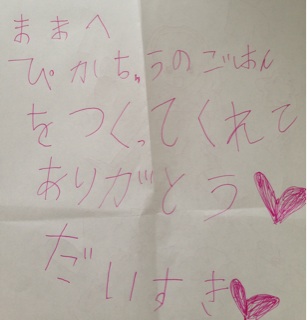 ままへ
ぴかちゅうのごはん
をつくってくれて
ありがとう
だいすき